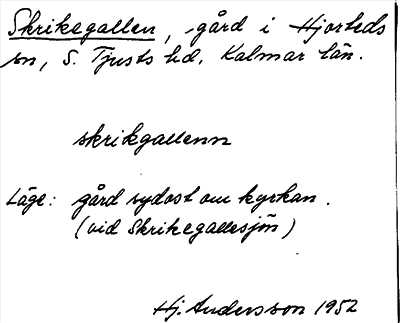 Skrikegallen, gård i Hjorteds
sn, S. Tjusts hd, Kalmar län.
skrikgallenn
Läge: gård sydost om kyrkan.
(vid Skrikegallesjön)
Hj. Andersson 1952